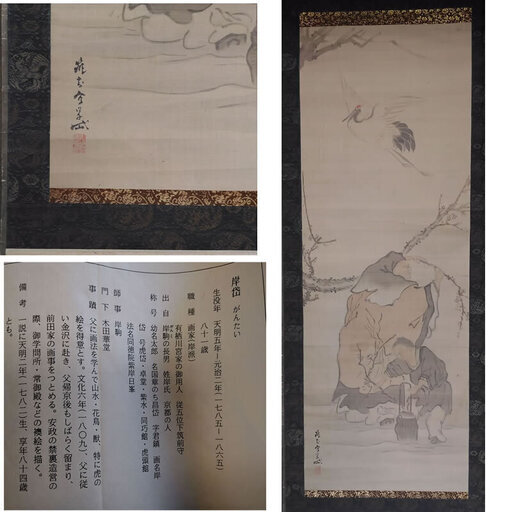 岸岱 がんたい
生没年 天明五年〜元治二年(一七八五ー一八六五)
八十一歳
職種 画家(岸派)
有栖川宮家の御用人 従五位下筑前守
出自 岸駒の長男 姓岸氏 京都の人
称号 幼名太郎 名国章のち昌岱 字君鎮 画名岸
岱 号虎岱・卓堂・紫水・同巧館・虎頭館
法名同徳院紫岸日峯
師事 岸駒
門下 木田華堂
事蹟 父に画法を学んで山水・花鳥・獣、特に虎の
絵を得意とす。文化六年(一八〇九)、父に従
い金沢に赴き、父帰京後もしばらく留まり、
前田家の画事をつとめる。安政の禁裏造営の
際、御学問所・常御殿などの襖絵を描く。
備考 一説に天明二年(一七八二)生、享年八十四歳
とも。